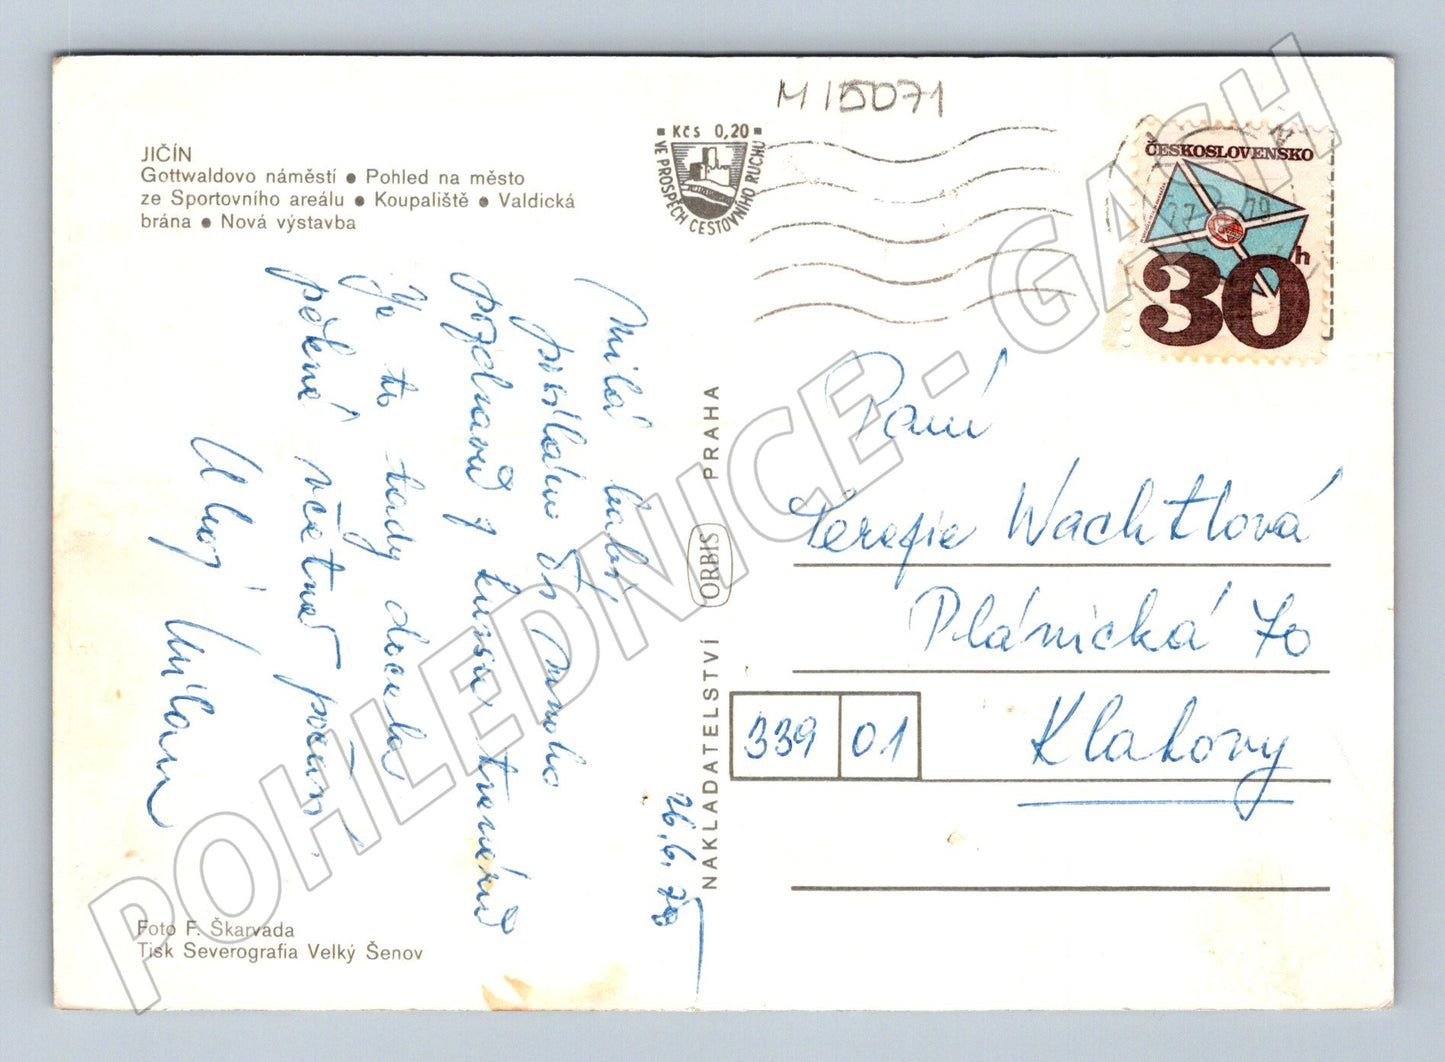 M 15071
JIČÍN
Gottwaldovo náměstí ● Pohled na město
ze Sportovního areálu ● Koupaliště ● Valdická
brána ● Nová výstavba
■ Kčs 0,20 ■
VE PROSPĚCH CESTOVNÍHO RUCHU
ČESKOSLOVENSKO
30h
27 79
Milá babi,
posílám Ti mnoho
pozdravů z kursu trenérů
Je to tady docela
pěkné včetně počasí.
Ahoj
Milan
26.6.79
NAKLADATELSTVÍ ORBIS PRAHA
Paní
Terezie Wachtlová
Plánická 70
339 01 Klatovy
Foto F. Škarvada
Tisk Severografia Velký Šenov
POHLEDNICE - GASH